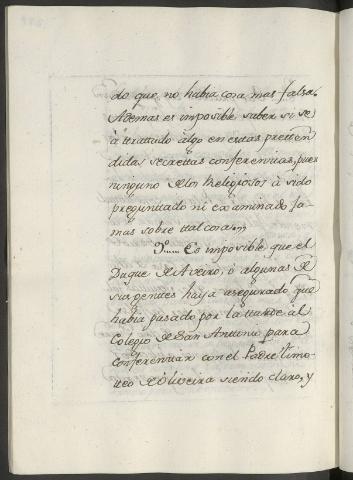 do que no habia cosa mas falsa.
Ademas es imposible saber si se
à ttrattado algo en esttas pretten
didas secrettas conferencias, pues
ninguno de los Religiosos à sido
pregunttado ni examinado ja
mas sobre ttal cosa.
3º Es imposible que el
Duque de Aveiro, o algunas de
sus genttes haya asegurado que
habia pasado por la ttarde al
Colegio de San Anttonio para
conferenciar con el Padre Timo
tteo de Oliveira siendo claro, y